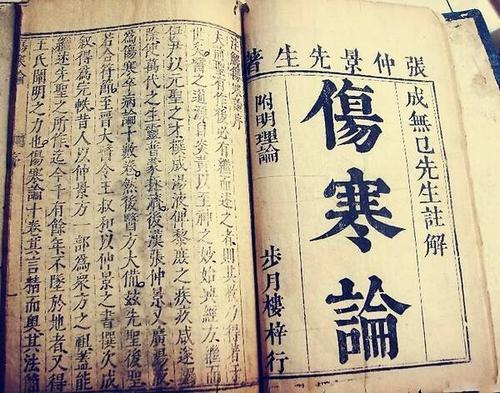 張仲景先生著
成無已先生註解
傷寒論
附明理論
步月樓梓行
注解傷寒論序
夫前聖有作後必有繼而述之者則其教乃得著于
世矣醫之道源自炎黃以至神之妙始興經方繼而
伊尹以元聖之才撰成湯液俾黎庶之疾疚咸遂蠲
除使萬代之生靈普蒙拯濟後漢張仲景又廣湯液
為傷寒卒病論十數卷然後醫方大備茲先聖後聖
若合符節至晉太醫令王叔和以仲景之書撰次成
敘得為完帙昔人以仲景方一部為眾方之祖蓋能
繼述先聖之所作迄今千有餘年不墜於地者又得
王氏闡明之力也傷寒論十卷其言精而奧其法簡
傷寒論